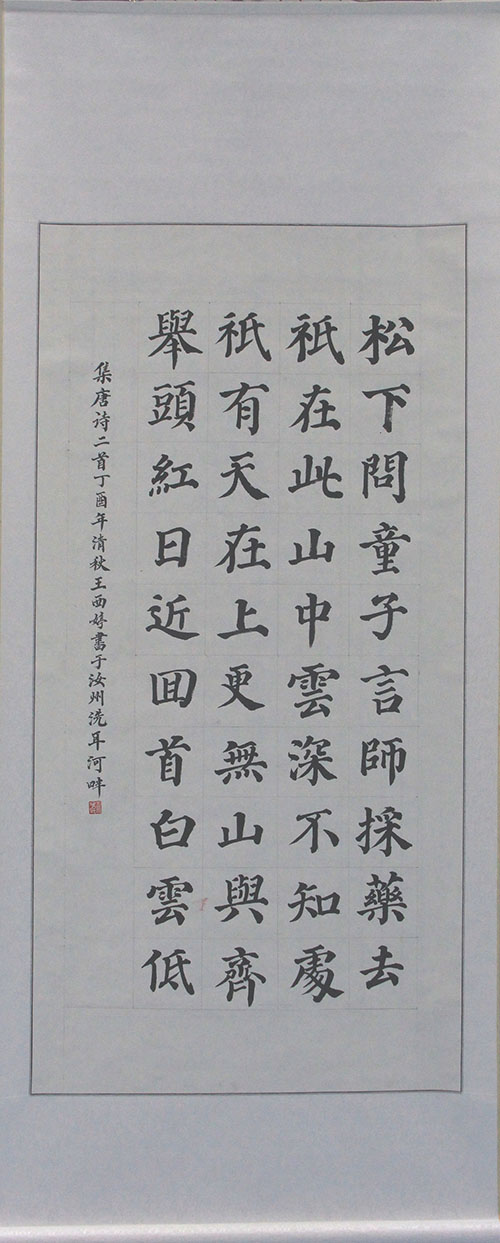 松下問童子言師採藥去
祇在此山中雲深不知處
祇有天在上更無山與齊
舉頭紅日近回首白雲低
集唐诗二首丁酉年清秋王西婷書于汝州洗耳河畔